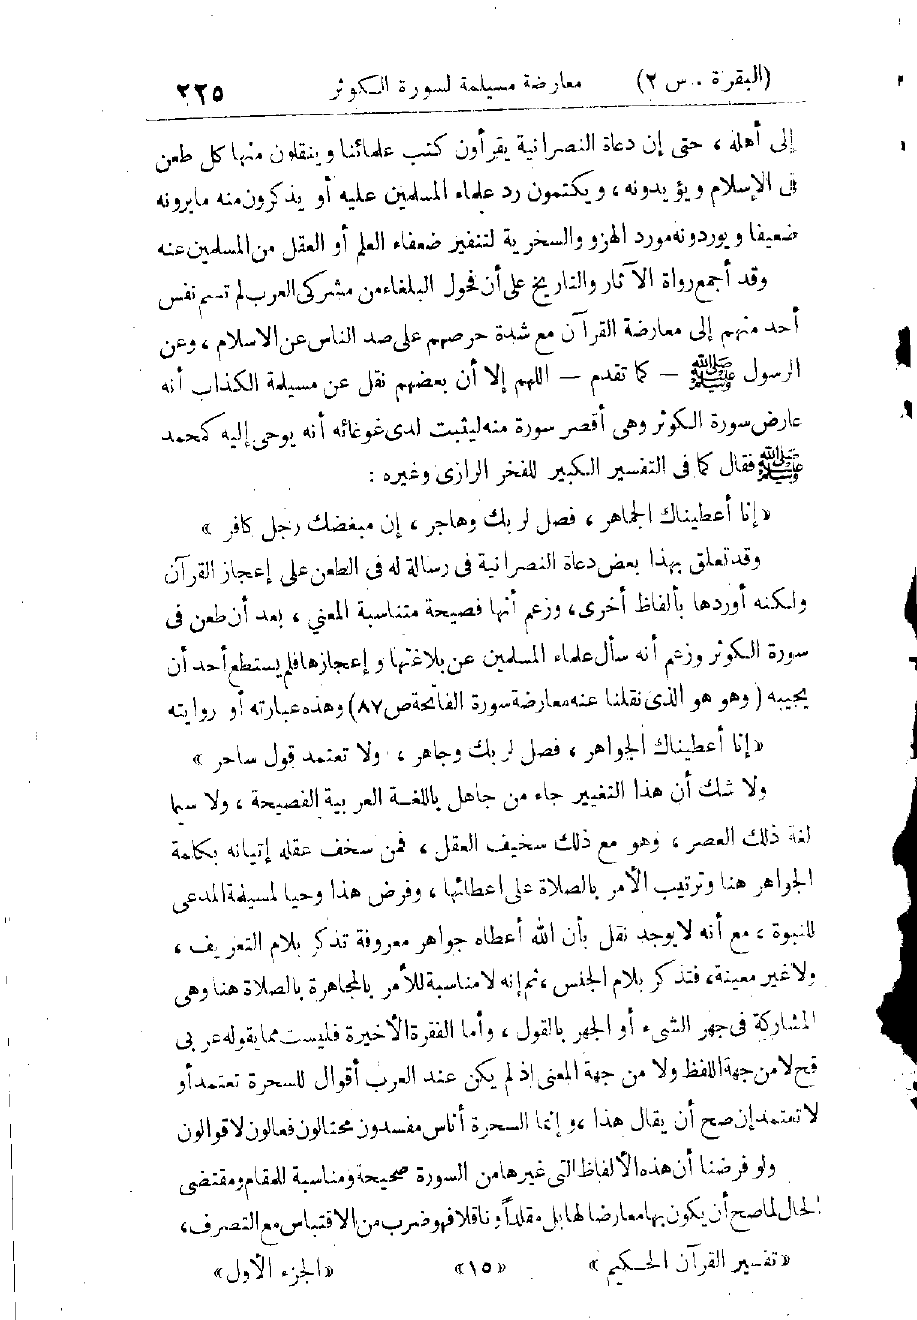 (البقرة . س ٢) معارضة مسيلمة لسورة الكوثر ٢٢٥
إلى أهله ، حتى إن دعاة النصرانية يقرأون كتب علمائنا وينقلون منها كل طعن
فى الإسلام ويؤيدونه ، ويكتمون رد علماء المسلمين عليه أو يذكرون منه ما يرونه
ضعيفا ويوردونه مورد الهزو والسخرية لتنفيز ضعفاء العلم أو العقل من المسلمين عنه
وقد أجمع رواة الآثار والتاريخ على أن فحول البلغاء من مشركى العرب لم تسم نفس
أحد منهم إلى معارضة القرآن مع شدة حرصهم على صد الناس عن الاسلام ، وعن
الرسول ﷺ – كما تقدم – اللهم إلا أن بعضهم نقل عن مسيلمة الكذاب أنه
عارض سورة الكوثر وهى أقصر سورة منه ليثبت لدى غوغائه أنه يوحى إليه كمحمد
ﷺ فقال كما فى التفسير الكبير للفخر الرازى وغيره :
« إنا أعطيناك الجماهر ، فصل لربك وهاجر ، إن مبغضك رجل كافر »
وقد تعلق بهذا بعض دعاة النصرانية فى رسالة له فى الطعن على إعجاز القرآن
ولكنه أوردها بألفاظ أخرى، وزعم أنها فصيحة متناسبة المعني ، بعد أن طعن فى
سورة الكوثر وزعم أنه سأل علماء المسلمين عن بلاغتها وإعجازها فلم يستطع أحد أن
يجيبه ( وهو هو الذى نقلنا عنه معارضة سورة الفاتحة ص ٨٧) وهذه عبارته أو روايته
« إنا أعطيناك الجواهر ، فصل لربك وجاهر ، ولا تعتمد قول ساحر »
ولا شك أن هذا التغيير جاء من جاهل باللغة العربية الفصيحة ، ولا سيما
لغة ذلك العصر ، وهو مع ذلك سخيف العقل ، فمن سخف عقله إتيانه بكلمة
الجواهر هنا وترتيب الأمر بالصلاة على اعطائها ، وفرض هذا وحيا لمسيلمة المدعى
للنبوة ، مع أنه لا يوجد نقل بأن الله أعطاه جواهر معروفة تذكر بلام التعريف ،
ولا غير معينة، فتذكر بلام الجنس ، ثم إنه لا مناسبة للأمر بالمجاهرة بالصلاة هنا وهى
المشاركة فى جهر الشىء أو الجهر بالقول ، وأما الفقرة الأخيرة فليست مما يقوله عربى
قح لا من جهة اللفظ ولا من جهة المعنى اذ لم يكن عند العرب أقوال للسحرة تعتمد أو
لا تعتمد إن صح أن يقال هذا ، وإنما السحرة أناس مفسدون محتالون فعالون لا قوالون
ولو فرضنا أن هذه الألفاظ التى غيرها من السورة صحيحة ومناسبة للمقام ومقتضى
الحال لما صح أن يكون بها معارضا لها بل مقلداً وناقلا فهو ضرب من الاقتباس مع التصرف،
« تفسير القرآن الحكيم » « ١٥ » « الجزء الأول »